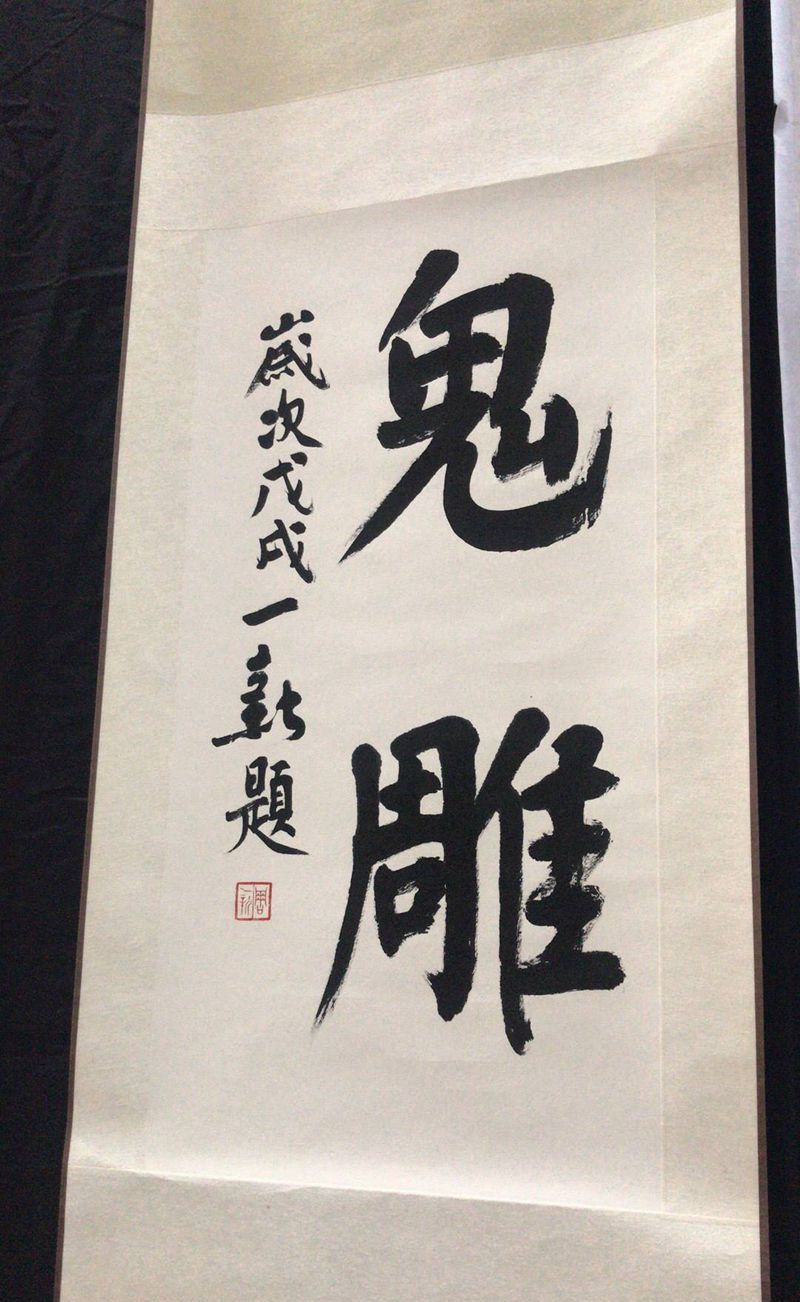 鬼雕
歲次戊戌一新題